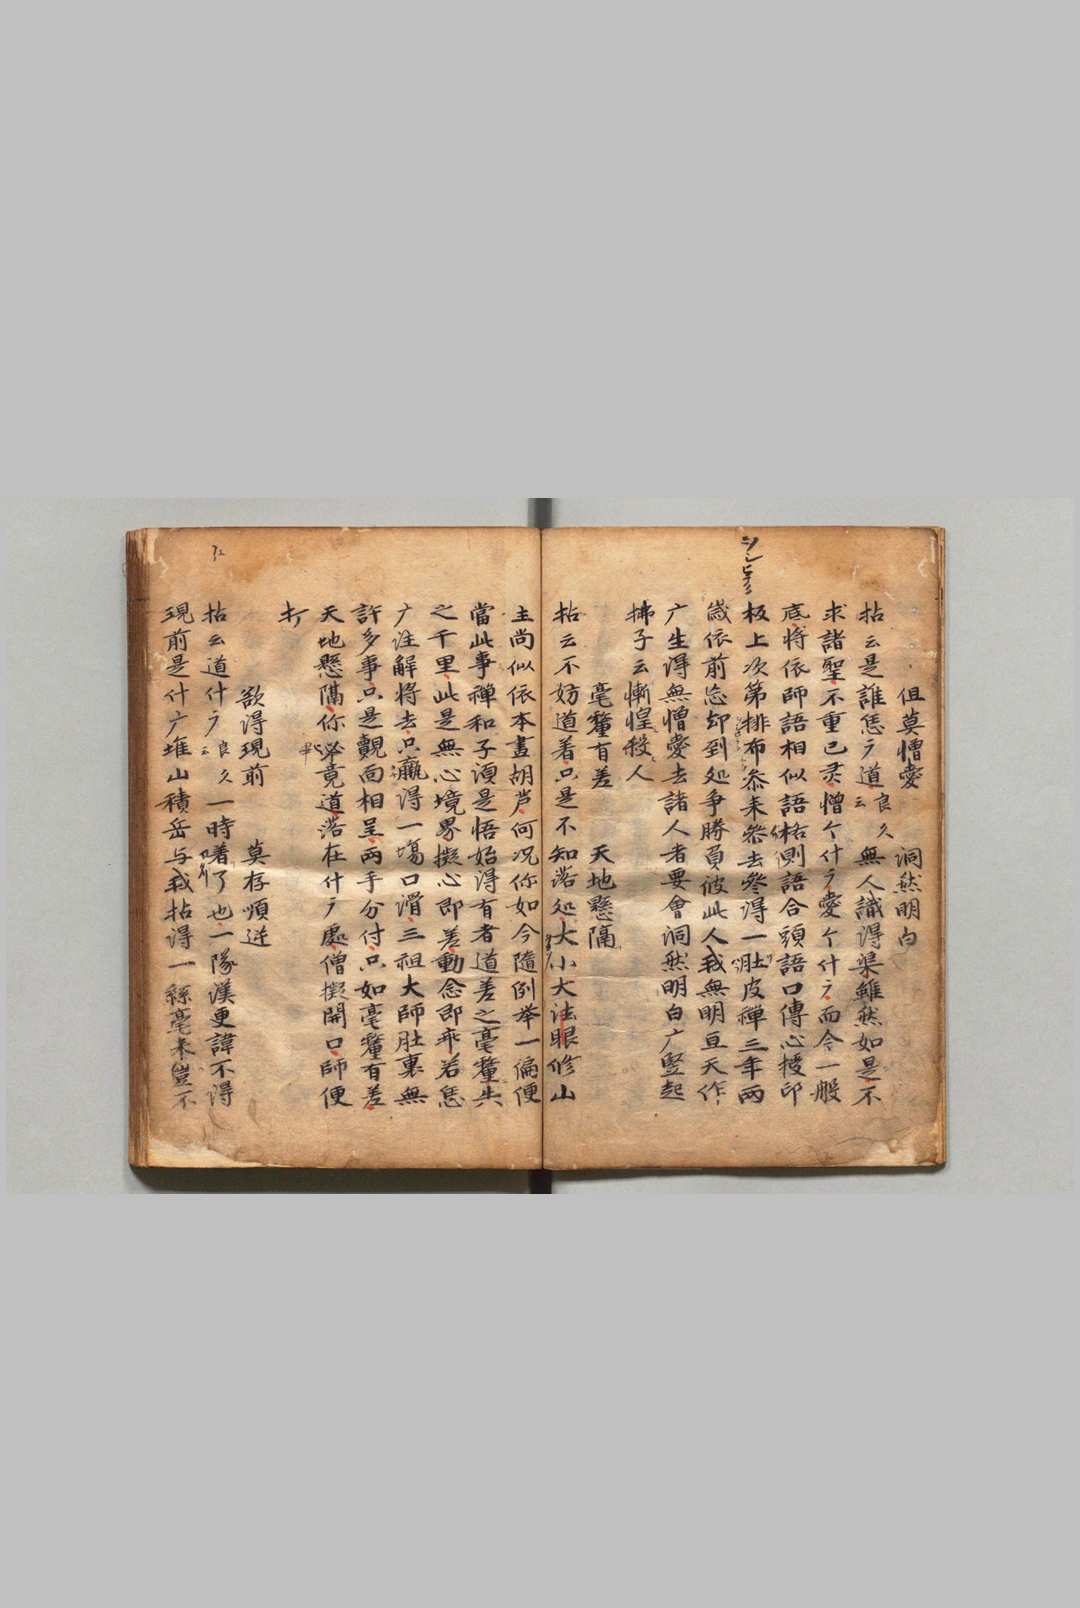 但莫憎愛　洞然明白
拈云是誰恁广道良久云無人識得渠雖然如是不
求諸聖不重己灵憎个什广愛个什广而今一般
底将依師語相似語格則語合頭語口傳心授印
板上次第排布参来参去参得一肚皮禅三年両
歳依前忘却到処争勝負彼此人我無明亘天作
广生得無憎愛去諸人者要會洞然明白广竪起
拂子云慚惶殺人
毫釐有差　天地懸隔
拈云不妨道着只是不知落処大小大法眼修山
主尚似依本畫胡芦何况你如今隨例举一偏便
當此事禅和子須是悟始得有者道差之毫釐失
之千里此是無心境界擬心即差動念即乖若恁
广注解将去只贏得一場口滑三祖大師肚裏無
許多事只是覿面相呈両手分付只如毫釐有差
天地懸隔你畢竟道落在什广處僧擬開口師便
打
欲得現前　莫存順逆
拈云道什广良久云一時着了也一隊漢更諱不得
現前是什广堆山積岳与我拈得一絲毫来豈不